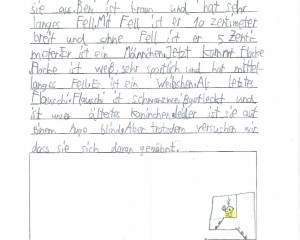 sie aus. Beni ist braun und hat sehr
langes Fell. Mit Fell ist er 10 zentimeter
breit und ohne Fell ist er 5 Zenti-
meter. Er ist ein Männchen. Jetzt kommt Flocke
Flocke ist weiß, sehr sportlich und hat mittel-
langes Fell. Es ist ein Weibchen. Als letztes
Flauschi. Flauschi ist schwarzweißgefleckt und
ist unser ältestes Kaninchen. Leider ist sie auf
einem Auge blind. Aber trotzdem versuchen wir
dass sie sich daran gewöhnt.